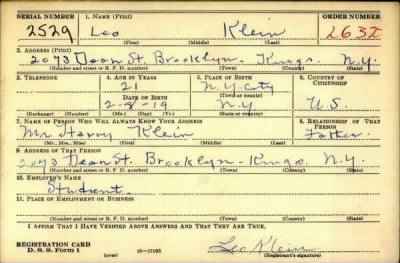 SERIAL NUMBER 1. NAME (Print) ORDER NUMBER
2529 Leo Klein 2632
(First) (Middle) (Last)
2. ADDRESS (Print)
2073 Dean St. Brooklyn. Kings. N.Y.
(Number and street or R. F. D. number) (Town) (County) (State)
3. TELEPHONE 4. AGE IN YEARS 5. PLACE OF BIRTH 6. COUNTRY OF CITIZENSHIP
21 N.Y. city
DATE OF BIRTH (Town or county)
2-8-19 N.Y U.S.
(Exchange) (Number) (Mo.) (Day) (Yr.) (State or country)
7. NAME OF PERSON WHO WILL ALWAYS KNOW YOUR ADDRESS 8. RELATIONSHIP OF THAT PERSON
Mr Harry Klein Father.
(Mr., Mrs., Miss) (First) (Middle) (Last)
9. ADDRESS OF THAT PERSON
2073 Dean St. Brooklyn-Kings. N.Y.
(Number and street or R. F. D. number) (Town) (County) (State)
10. EMPLOYER'S NAME
Student.
11. PLACE OF EMPLOYMENT OR BUSINESS
(Number and street or R. F. D. number) (Town) (County) (State)
I AFFIRM THAT I HAVE VERIFIED ABOVE ANSWERS AND THAT THEY ARE TRUE.
REGISTRATION CARD
D. S. S. Form 1 (over) 16-17105 Leo Klein
(Registrant's signature)